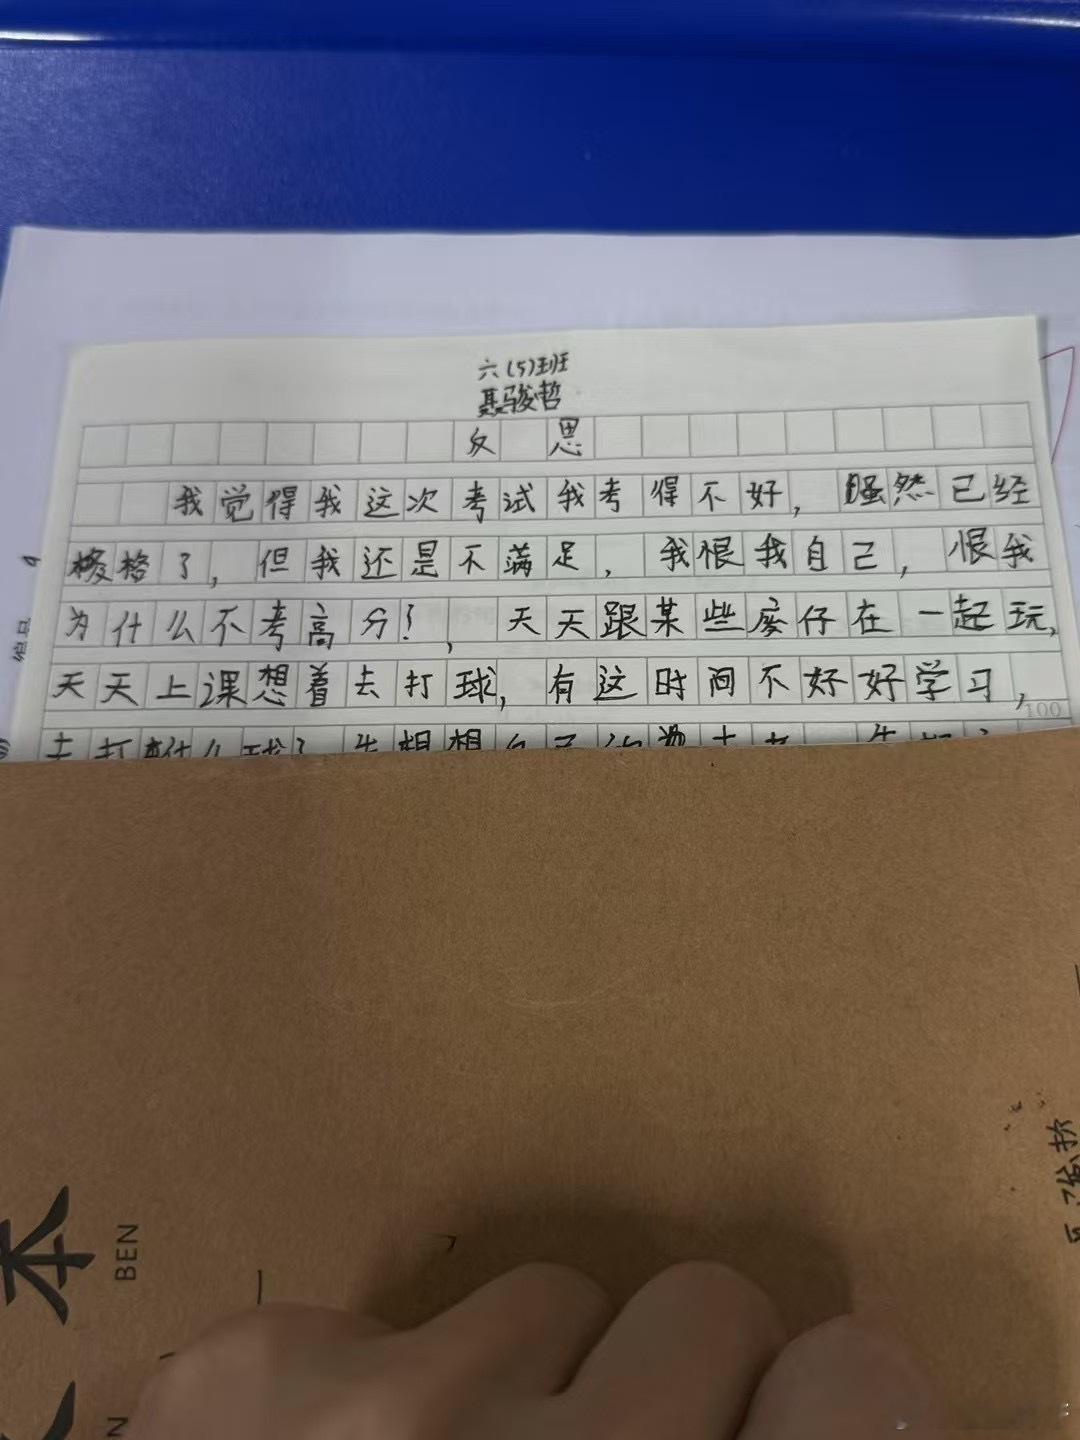 六(5)班
聂骏哲
反思
我觉得我这次考试我考得不好，虽然已经
格了，但我还是不满足，我恨我自己，恨我
为什么不考高分！，天天跟某些仔在一起玩，
天天上课想着去打球，有这时间不好好学习，
100
去打什么球？先想想自己的
本
BEN
N